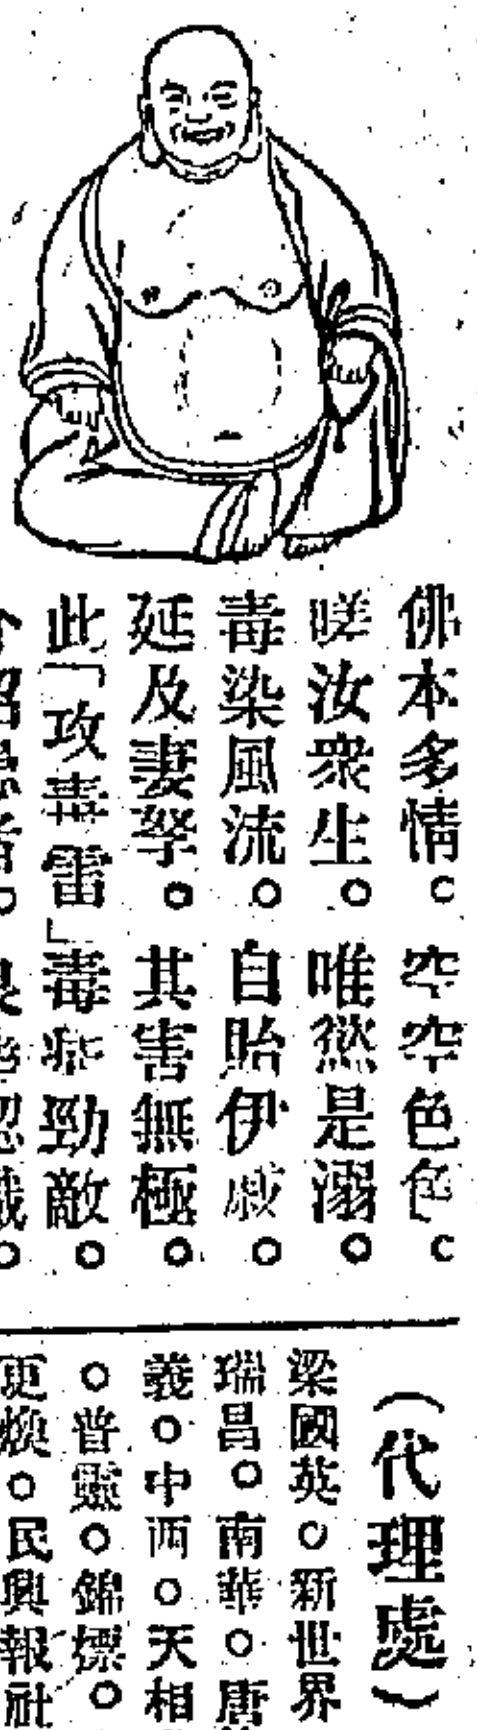 佛本多情。空空色色。
嗟汝衆生。唯慾是溺。
毒染風流。自貽伊戚。
延及妻孥。其害無極。
此「攻毒雷」毒症勁敵。
介紹患者。良
（代理處）
梁國英。新世界
瑞昌。南華。唐
義。中西。天相
。普靈。錦標。
更煥。民興報社